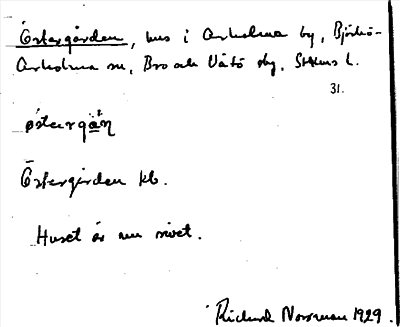 Östergården, hus i Arholma by, Björkö-
Arholma sn, Bro och Vätö skg, Sthlms l.
31.
østargạ̈n
Östergården kb.
Huset är nu rivet.
Richard Norrman 1929.